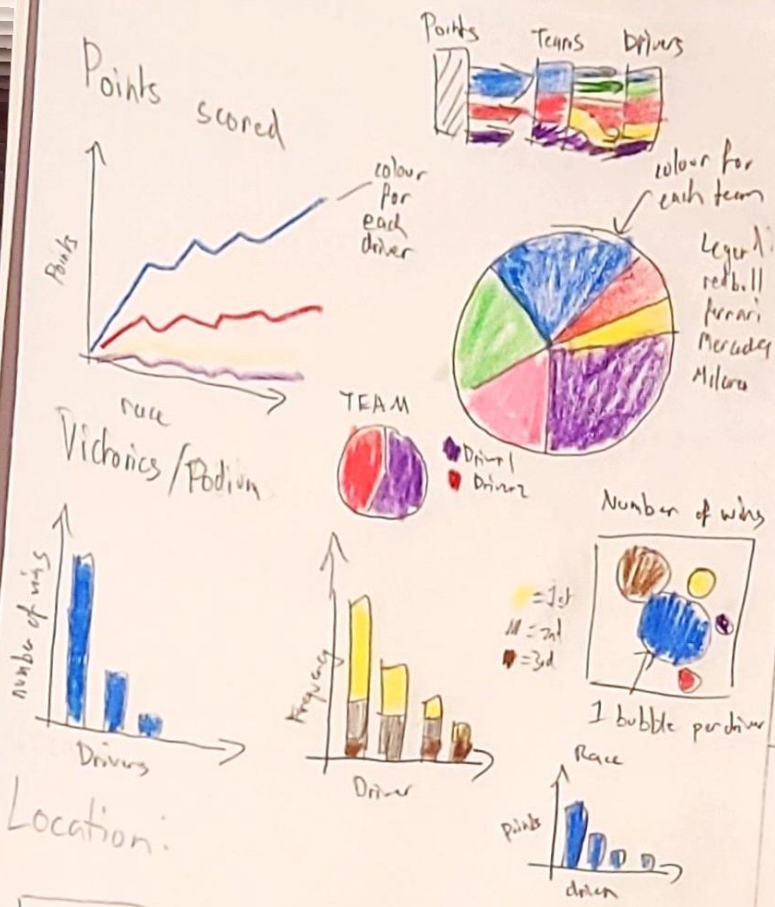 Points scored
Points
Teams
Drivers
colour for
each driver
Points
race
colour for
each team
Legend:
redbull
ferrari
TEAM
Driver 1
Driver 2
Victories/Podium
number of wins
Drivers
Frequency
Driver
= 1st
= 2nd
= 3rd
Number of wins
1 bubble per driver
Race
points
Location: